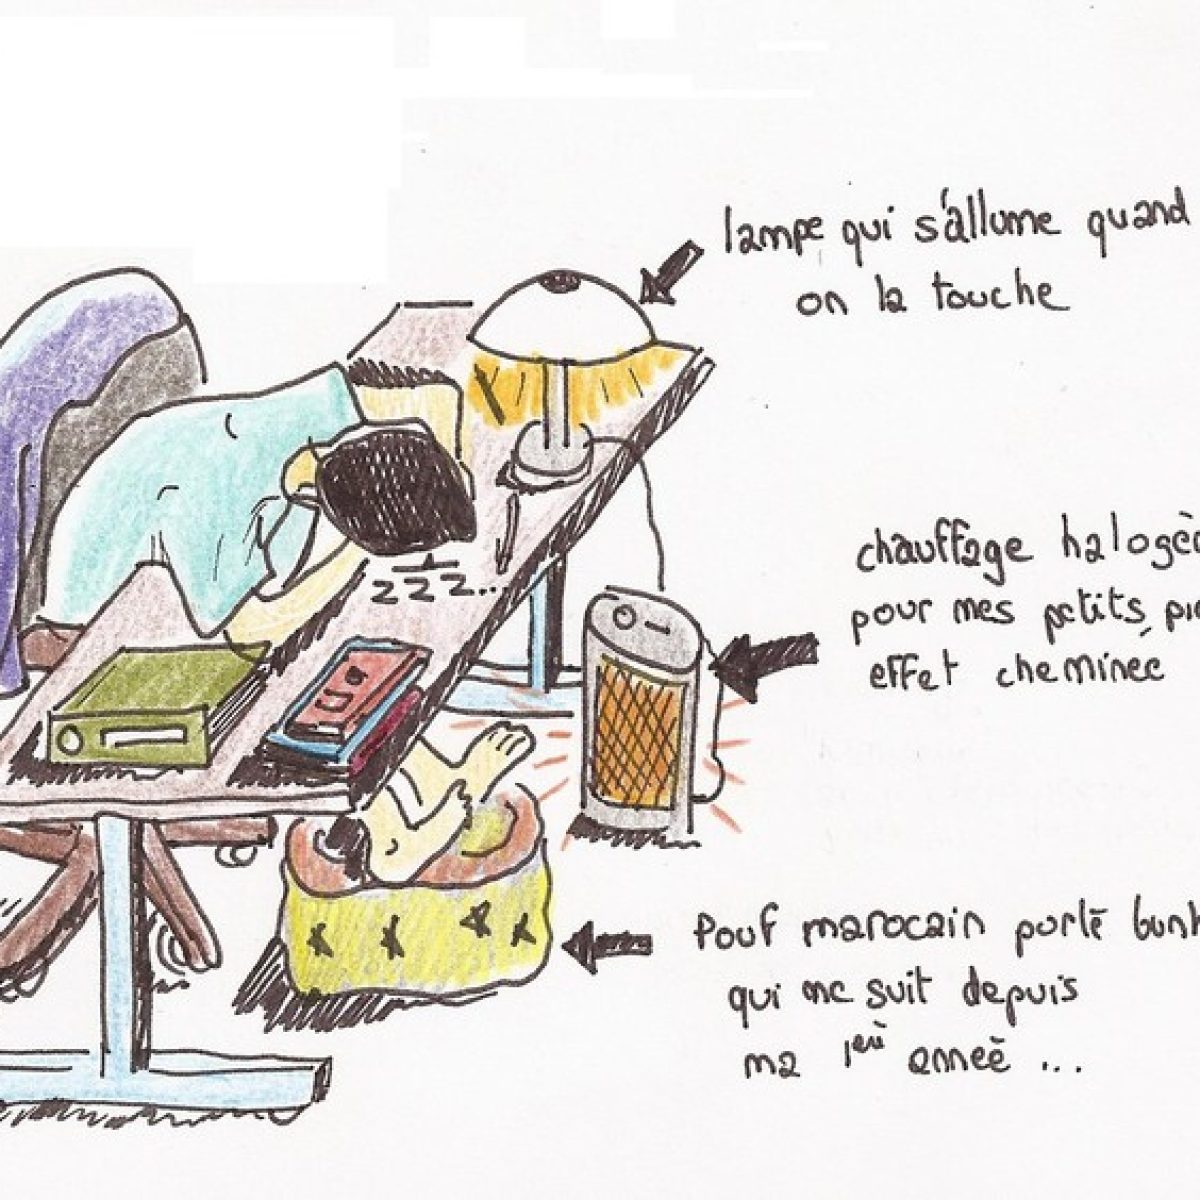 lampe qui s'allume quand
on la touche
zzz...
chauffage
pour mes petits
effet cheminée
Pouf marocain porté
qui me suit depuis
ma 1erè anneè ...